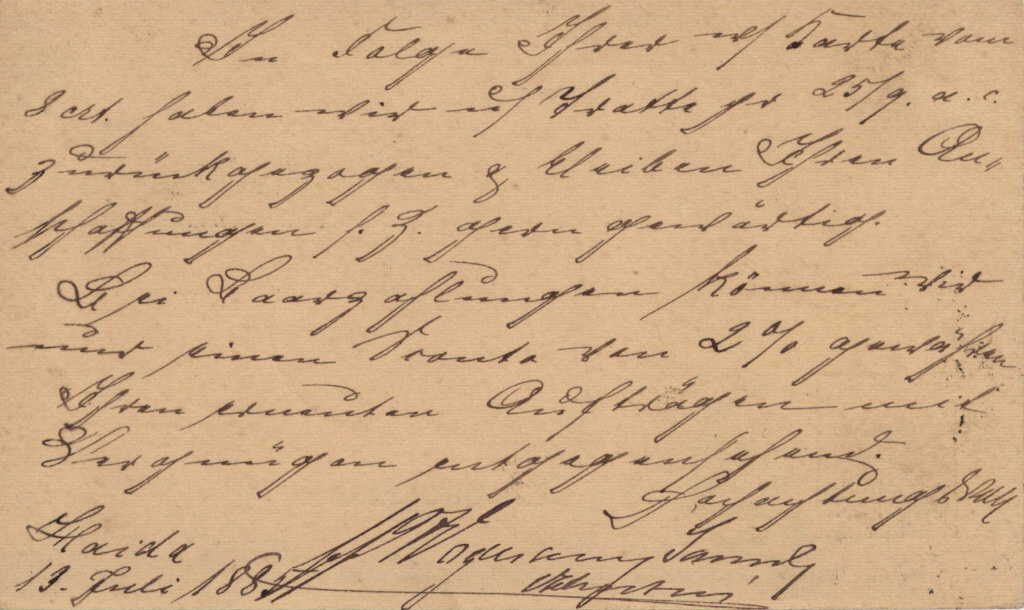 In Folge Ihrer w/ Karte vom
8 crt. haben wir u/ Tratte pr 25/9. a. c.
zurückgezogen & bleiben Ihren An„
schaffungen s. Z. gern gewärtig.
Bei Baarzahlungen können wir
nur einen Sconto von 2 % gewähren
Ihren erneuten Aufträgen mit
Vergnügen entgegensehend.
Hochachtungsvoll
Haida
13. Juli 188